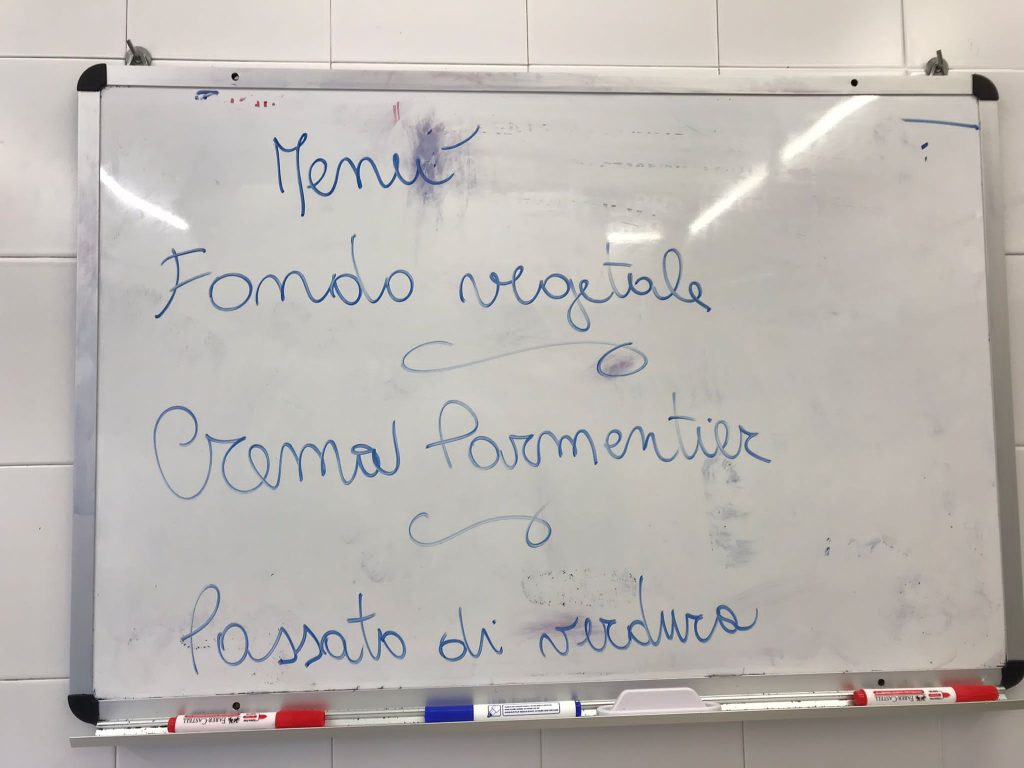 Menú
Fondo vegetale
Crema Parmentier
Passato di verdura
FABER-CASTELL
FABER-CASTELL